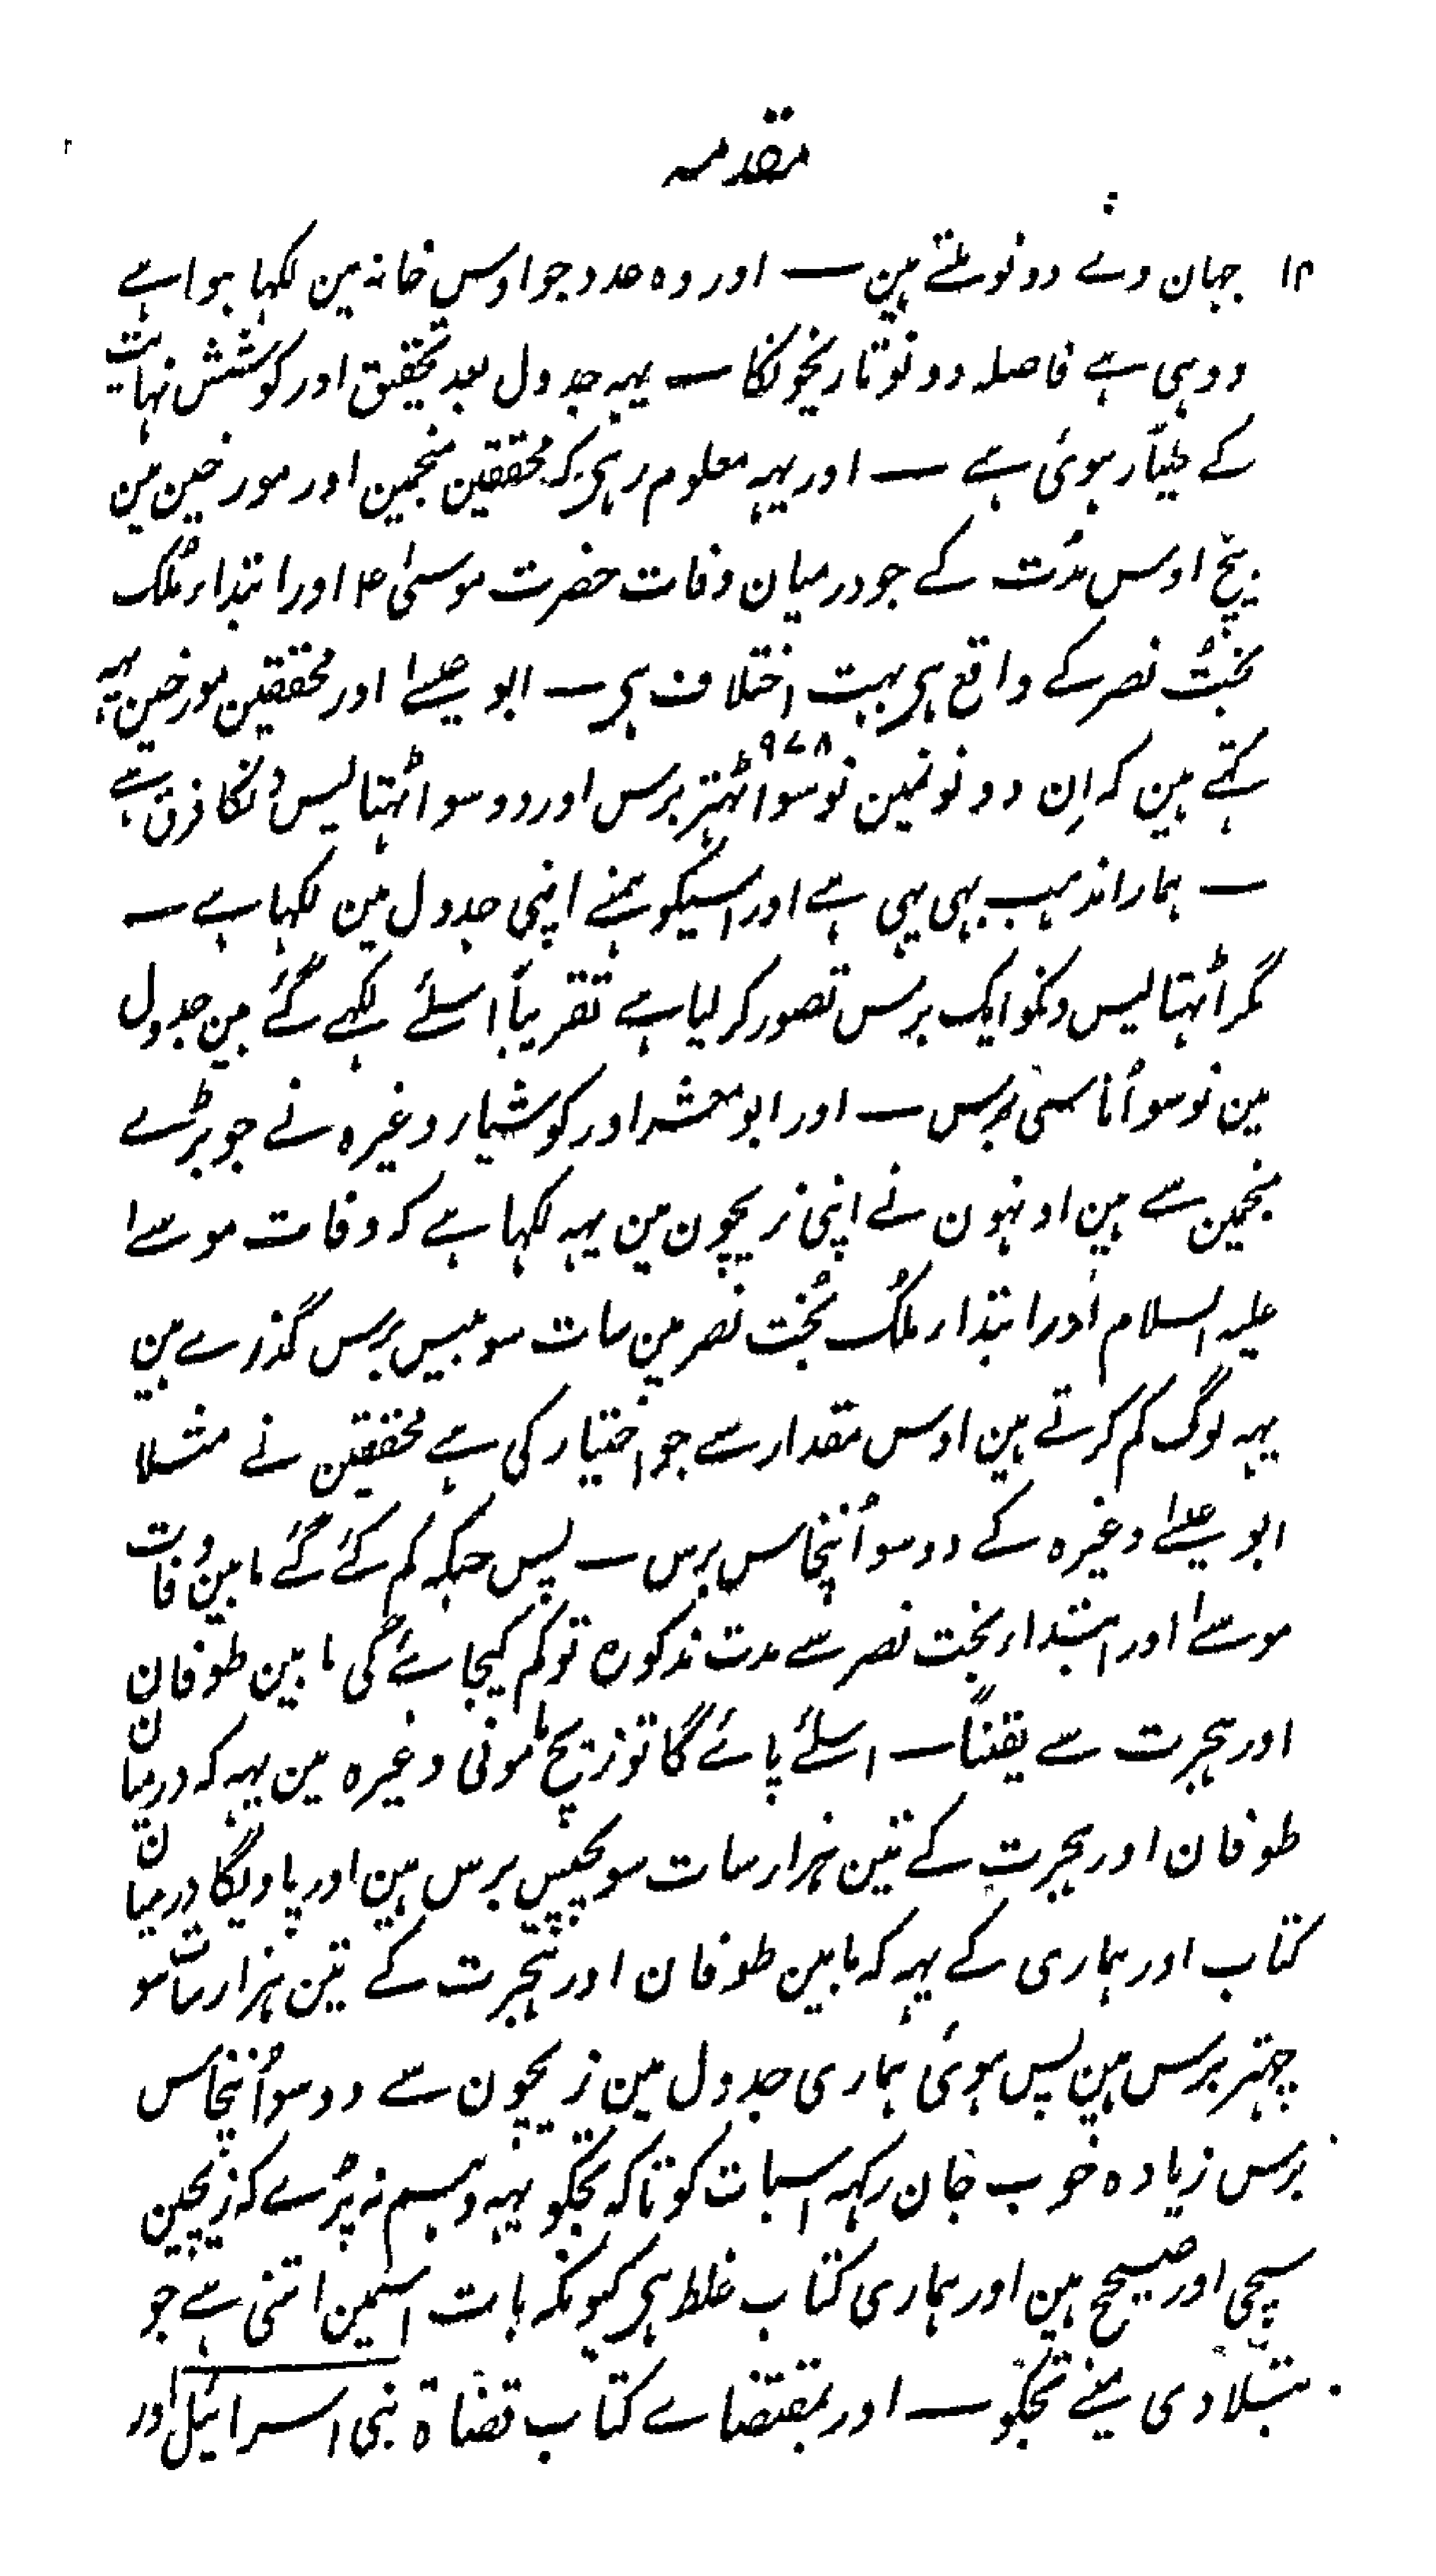 مقدمہ
۱۲ جہان وے دونو ملتے ہین ـــ اور وہ عدد جو اوس خانہ مین لکہا ہوا ہے
ووہی ہے فاصلہ دونو تاریخونکا ـــ یہہ جدول بعد تحقیق اور کوشش نہایت
کے طیّار ہوئی ہے ـــ اور یہہ معلوم رہی کہ محققین منجمین اور مورخین مین
بیچ اوس مدّت کے جو درمیان وفات حضرت موسیٰ ۴ اور ابتداء مُلک
بختُ نصر کے واقع ہی بہت اختلاف ہی ـــ ابو عیسےٰ اور محققین مورخین یہہ
۹۷۸
کہتے ہین کہ اِن دونو نمین نوسو اٹہتر برس اور دو سو اٹہتالیس دنکا فرق ہے
ـــ ہمارا مذہب بہی یہی ہے اور اسیکو ہمنے اپنی جدول مین لکہا ہے ـــ
مگر اٹہتالیس دنکو ایک برس تصور کر لیا ہے تقریباً اسلئے لکہے گئے ہین جدول
مین نوسو اُناسی برس ـــ اور ابو معشر اور کوشیار وغیرہ نے جو بڑے
منجمین سے ہین اونہون نے اپنی زیچون مین یہہ لکہا ہے کہ وفات موسےا
علیہ السلام اور ابتداء ملُک بُخت نصر مین سات سو بیس برس گذرے ہین
یہہ لوگ کم کرتے ہین اوس مقدار سے جو اختیار کی ہے محققین نے مثلا
ابو عیسےٰ وغیرہ کے دو سو اُنچاس برس ـــ پس جبکہ کم کئے گئے مابین وفات
موسےٰ اور ابتداء بخت نصر سے مدت مذکورہ تو کم کیجائے گی مابین طوفان
اور ہجرت سے یقیناً ـــ اسلئے پائے گا تو زیچ مامونی وغیرہ مین یہہ کہ درمیان
طوفان اور ہجرت کے تین ہزار سات سو پچیس برس ہین اور پاویگا درمیان
کتاب اور ہماری کے یہہ کہ مابین طوفان اور ہجرت کے تین ہزار سات سو
چہتر برس ہین پس ہوئی ہماری جدول مین زیچون سے دو سو اُنچاس
برس زیادہ خوب جان رکہہ اسبات کو تاکہ تجکو یہہ وہم نہ پڑے کہ زیچین
سچی اور صحیح ہین اور ہماری کتاب غلط ہی کیونکہ بات اسمین اتنی ہے جو
بتلا دی مینے تجکو ـــ اور بمقتضاے کتاب قضاۃ بنی اسرائیل اور